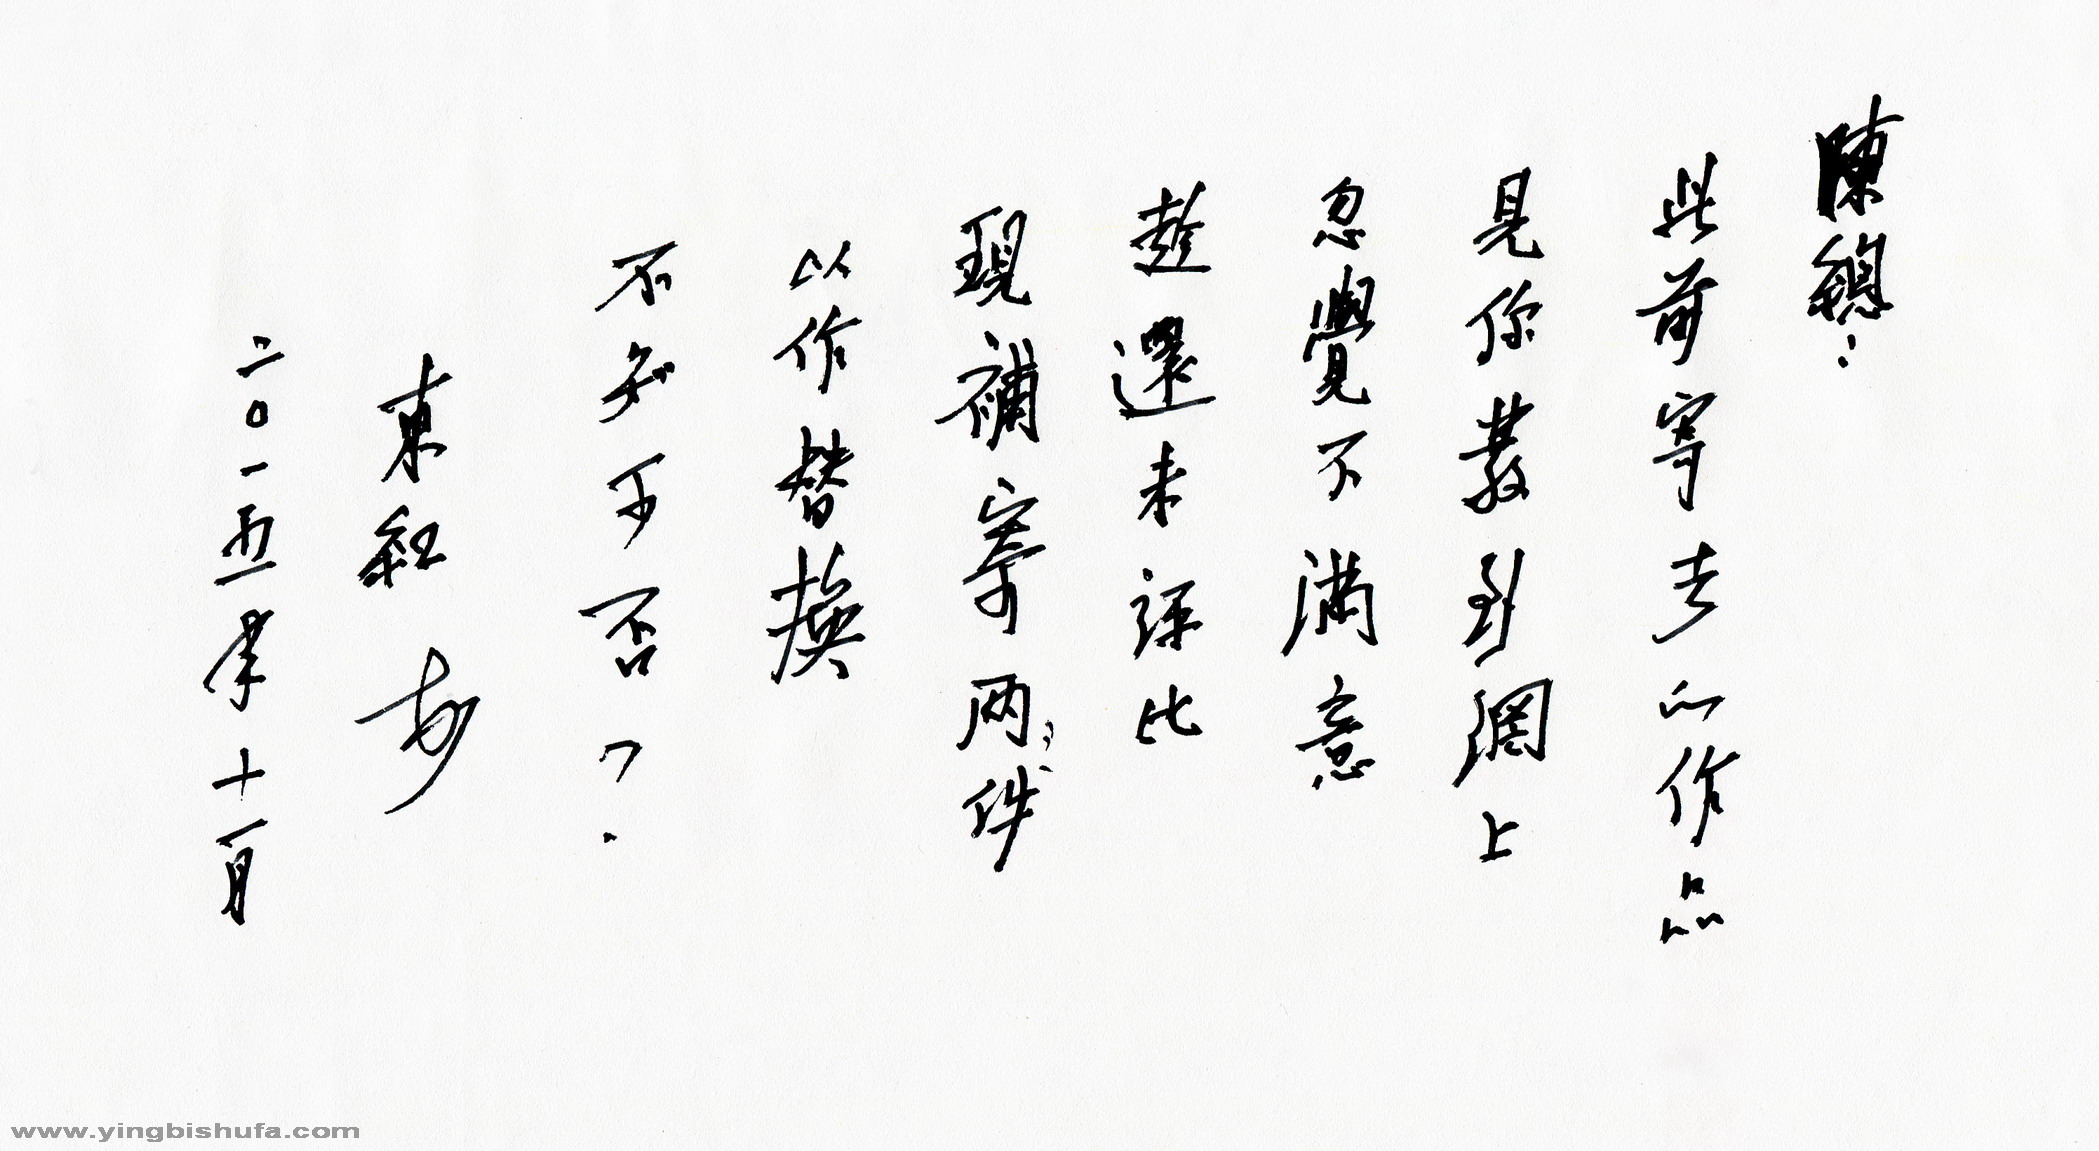 陳總：
此前寄去的作品
見你發到網上
忽覺不滿意
趁還未評比
現補寄两件
以作替換
不知可否？
東
二〇一五年十一月
www.yingbishufa.com